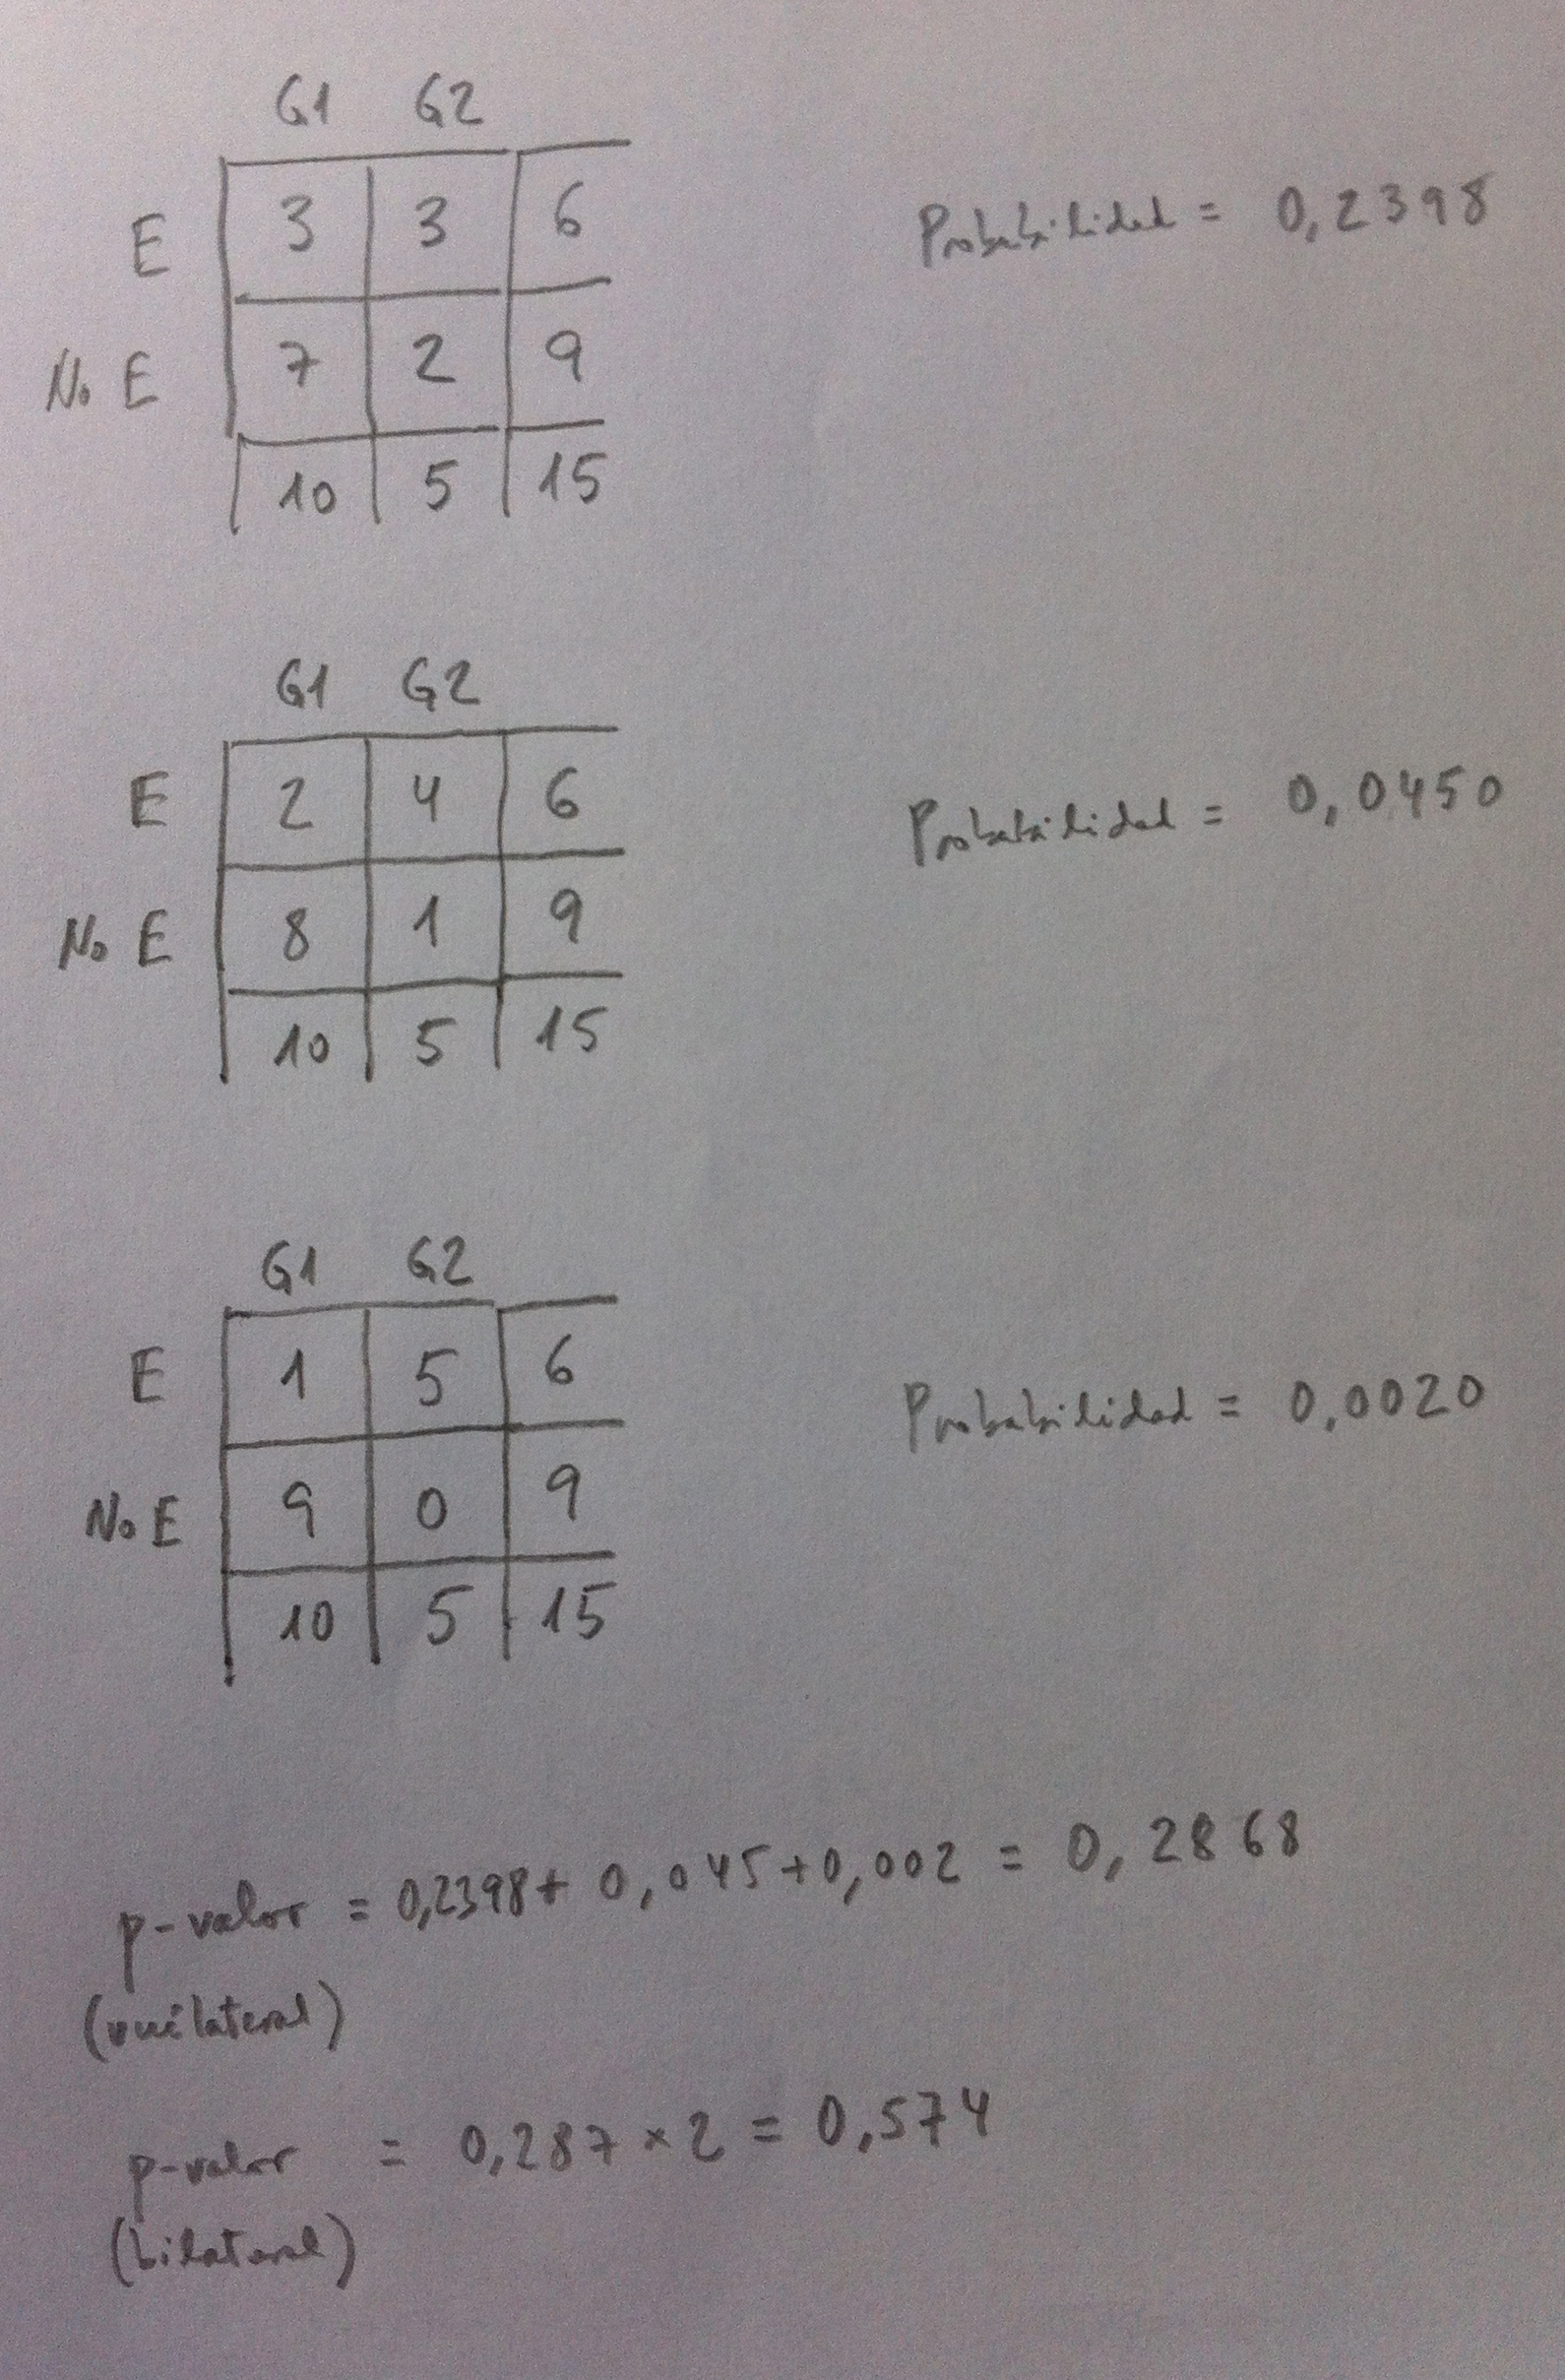 G1 G2
E 3 3 6
No E 7 2 9
10 5 15
Probabilidad = 0,2398
G1 G2
E 2 4 6
No E 8 1 9
10 5 15
Probabilidad = 0,0450
G1 G2
E 1 5 6
No E 9 0 9
10 5 15
Probabilidad = 0,0020
p-valor = 0,2398 + 0,045 + 0,002 = 0,2868
(unilateral)
p-valor = 0,287 × 2 = 0,574
(bilateral)